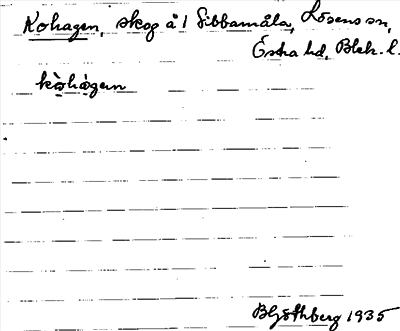 Kohagen, skog å 1 Gibbamåla, Lösens sn,
Östra hd, Blek. l.
kò̱hà̱gen
BGöthberg 1935